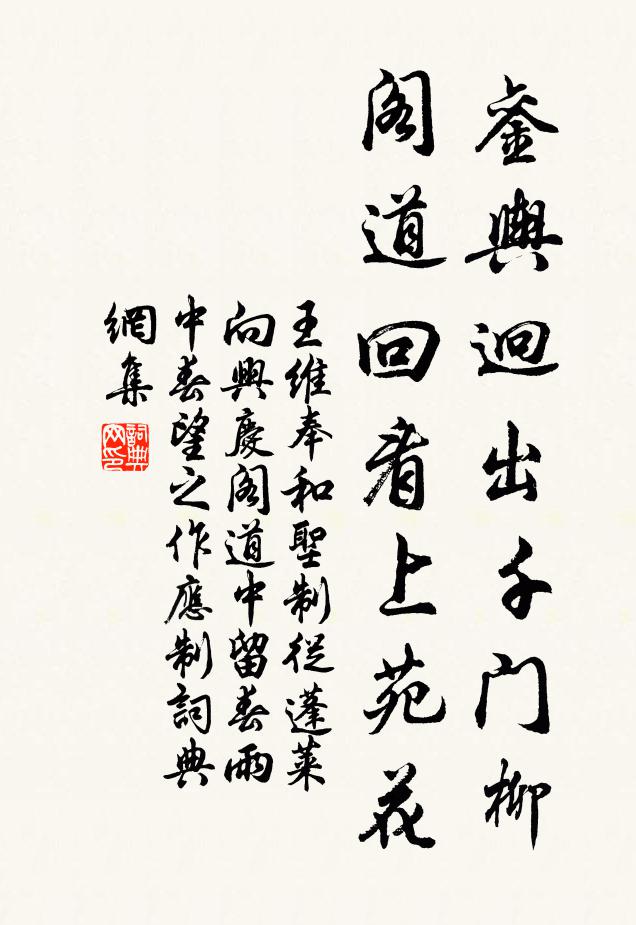 銮輿迥出千门柳
阁道回看上苑花
王維奉和聖制從蓬萊
向興慶阁道中留春雨
中春望之作應制詞典
網集
詞典网印